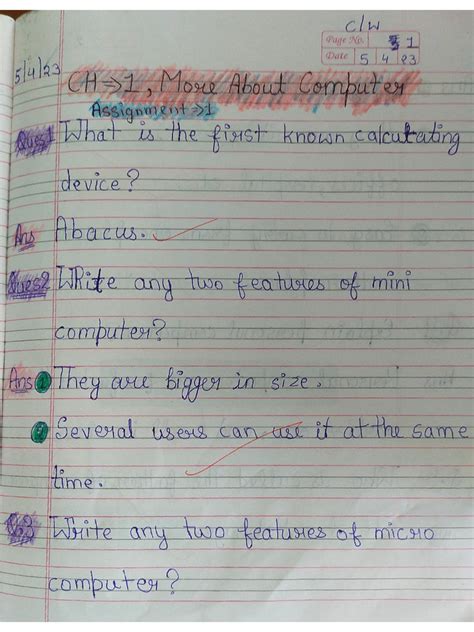 C/W
Page No. 1
Date 5 4 23
5/4/23
CH⇒1, More About Computer
Assignment⇒1
Ques1 What is the first known calculating
device?
Ans Abacus.
Ques2 Write any two features of mini
computer?
Ans 1 They are bigger in size.
2 Several users can use it at the same
time.
Q3 Write any two features of micro
computer?